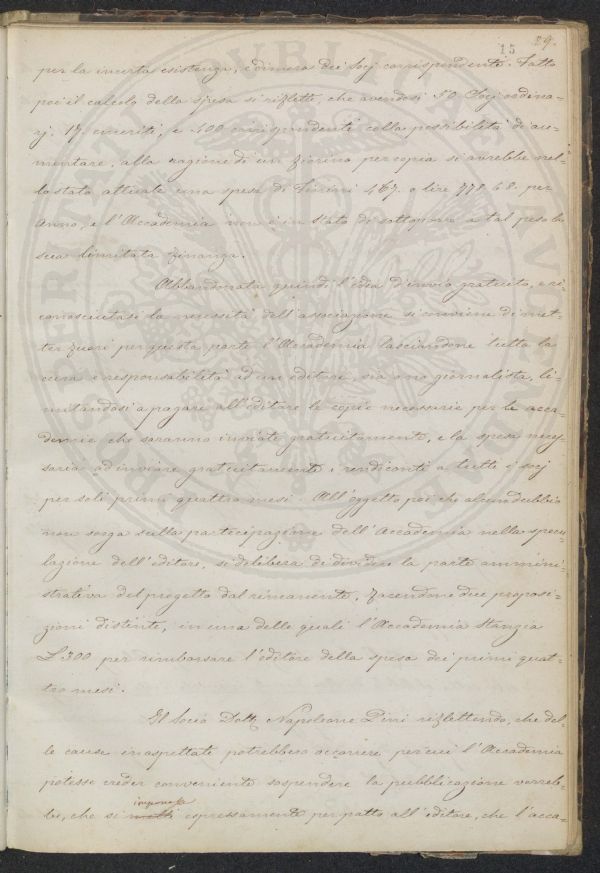 15 29.
per la incerta esistenza, e dimora dei Socj corrispondenti. Fatto
poi il calcolo della spesa si riflette, che avendosi 50 Socj ordina=
rj, 17 emeriti, e 400 corrispondenti colla possibilità di au=
mentare, alla ragione di un fiorino per copia si avrebbe nel=
lo stato attuale una spesa di Fiorini 467. o lire 778.48. per
anno, e l'Accademia non è in stato di sottoporre a tal peso la
sua limitata finanza.
Abbandonata quindi l'idea d'invio gratuito, e ri=
conosciutasi la necessità dell'associazione si conviene di met=
ter fuori per questa parte l'Accademia lasciandone tutta la
cura e responsabilità ad un editore, sia o no giornalista, li=
mitandosi a pagare all'editore le copie necessarie per le acca=
demie che saranno inviate gratuitamente, e la spesa neces=
saria ad inviare gratuitamente i rendiconti a tutti i socj
per soli primi quattro mesi. All'oggetto poi che alcun dubbio
non sorga sulla partecipazione dell'Accademia nella specu=
lazione dell'editore, si delibera di dividere la parte ammini=
strativa del progetto dal rimanente, facendone due proposi=
zioni distinte, in una delle quali l'Accademia stanzia
L. 300 per rimborsare l'editore della spesa dei primi quat=
tro mesi.
Il Socio Dott. Napoleone Pini riflettendo, che del=
le cause inaspettate potrebbero occorrere per cui l'Accademia
potesse creder conveniente sospendere la pubblicazione vorreb=
imponesse
be, che si metta espressamente per patto all'editore, che l'acca=
PROSPERITATI PUBLICAE AUGENDAE